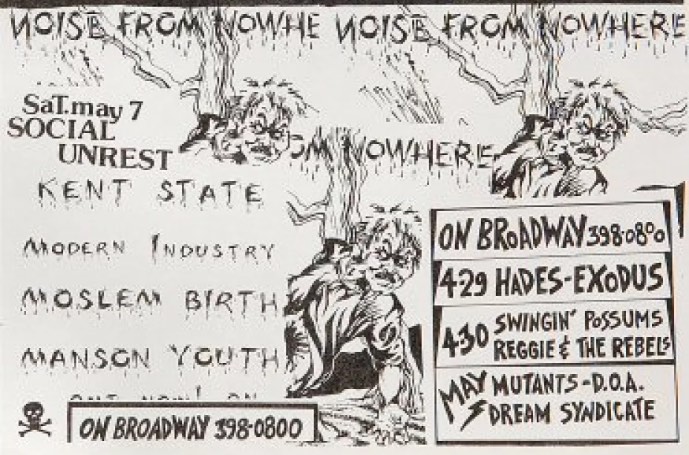 NOISE FROM NOWHE
NOISE FROM NOWHERE
SaT. may 7
SOCIAL
UNREST
OM NOWHERE
KENT STATE
MODERN INDUSTRY
MOSLEM BIRTH
MANSON YOUTH
OUT NOW! ON
ON BROADWAY 398-0800
ON BROADWAY 398-0800
429 HADES-EXODUS
430 SWINGIN' POSSUMS
REGGIE & THE REBELS
MAY 7 MUTANTS-D.O.A.
DREAM SYNDICATE